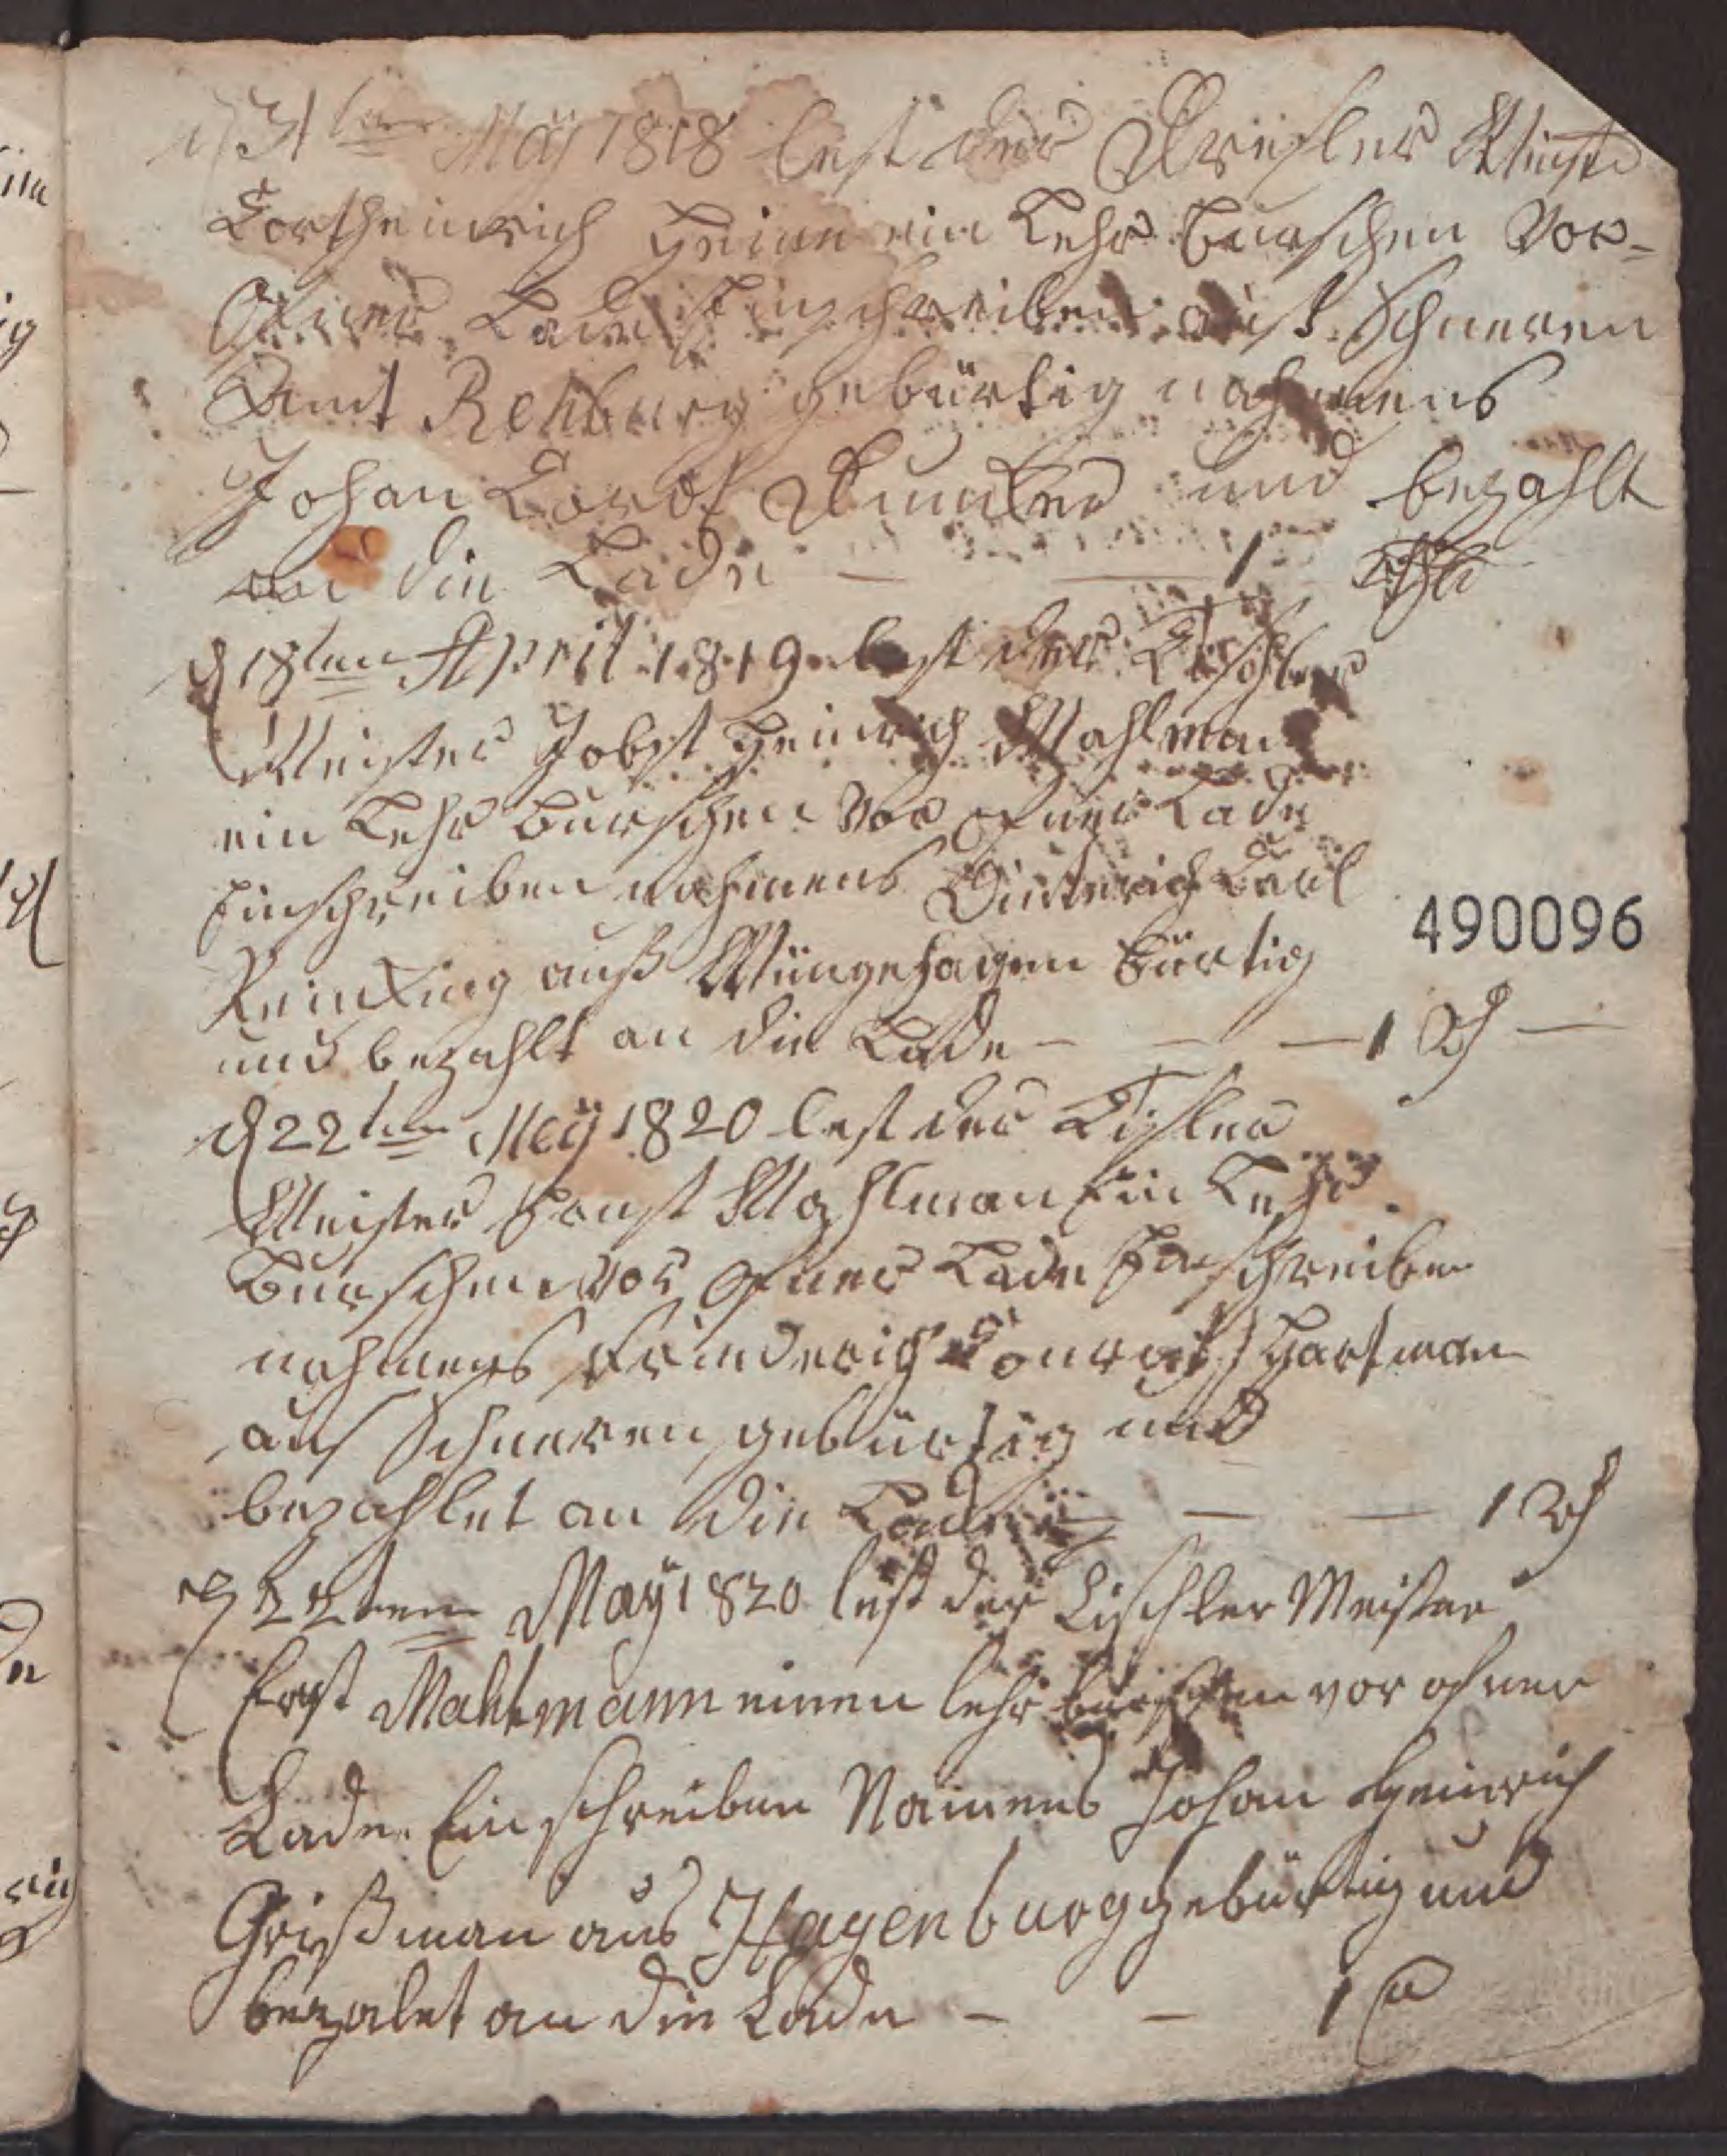 d 31ten Maÿ 1818 lest der Dreßler Meister
Cortheinrich Heine ein Lehr burschen Vor-
Ofner Lade Einschreiben auß Schneren
Amt Rehburg gebürtig nahmens
Johan Cordt und bezahlt
an die Lade — — 1 Thlr
d 18ten April 1819 lest der Tischler
Meister Jobst Heinrich Mahlman
ein Lehr Burschen Vor Ofner Lade
Einschreiben nahmens Dieterich Carl
Reinking auß Wüngehagen bürtig
und bezahlt an die Lade — — — 1 Rth —
d 22ten Meÿ 1820 lest der Tisler
Meister Ernst Mahlman Ein Lehr
Burschen vor Ofner Lade Einschreiben
nahmens Friederich Conrath Hartman
aus Schneren gebürtig und
bezahlet an die Lade — — 1 Rth
d 22tem Maÿ 1820 lest der Tischler Meister
Ernst Mahlmann einen lehr burschen vor ofner
Lade Ein schreiben Namens Johan Heinrich
Grißman aus Hagenburg gebürtig und
bezalet an die Lade — — 1
490096